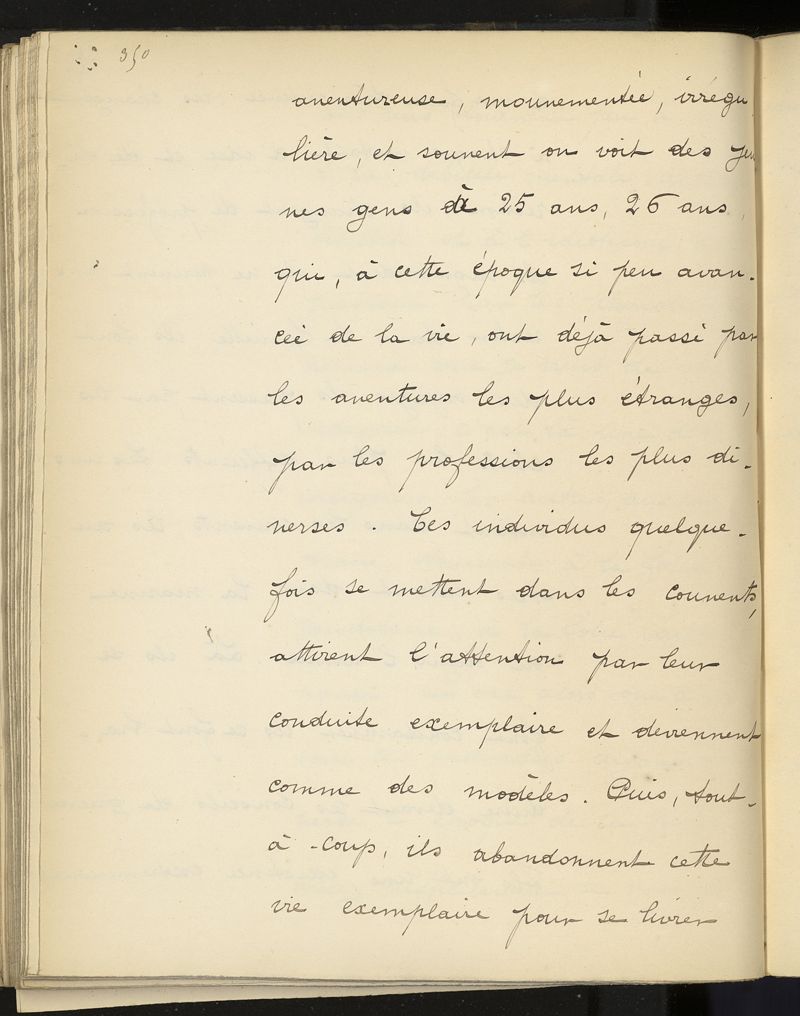 350
aventureuse, mouvementée, irrégu
lière, et souvent on voit des jeu
nes gens à 25 ans, 26 ans,
qui, à cette époque si peu avan-
cée de la vie, ont déjà passé par
les aventures les plus étranges,
par les professions les plus di-
verses. Ces individus quelque-
fois se mettent dans les couvents,
attirent l'attention par leur
conduite exemplaire et deviennent
comme des modèles. Puis, tout-
à-coup, ils abandonnent cette
vie exemplaire pour se livrer